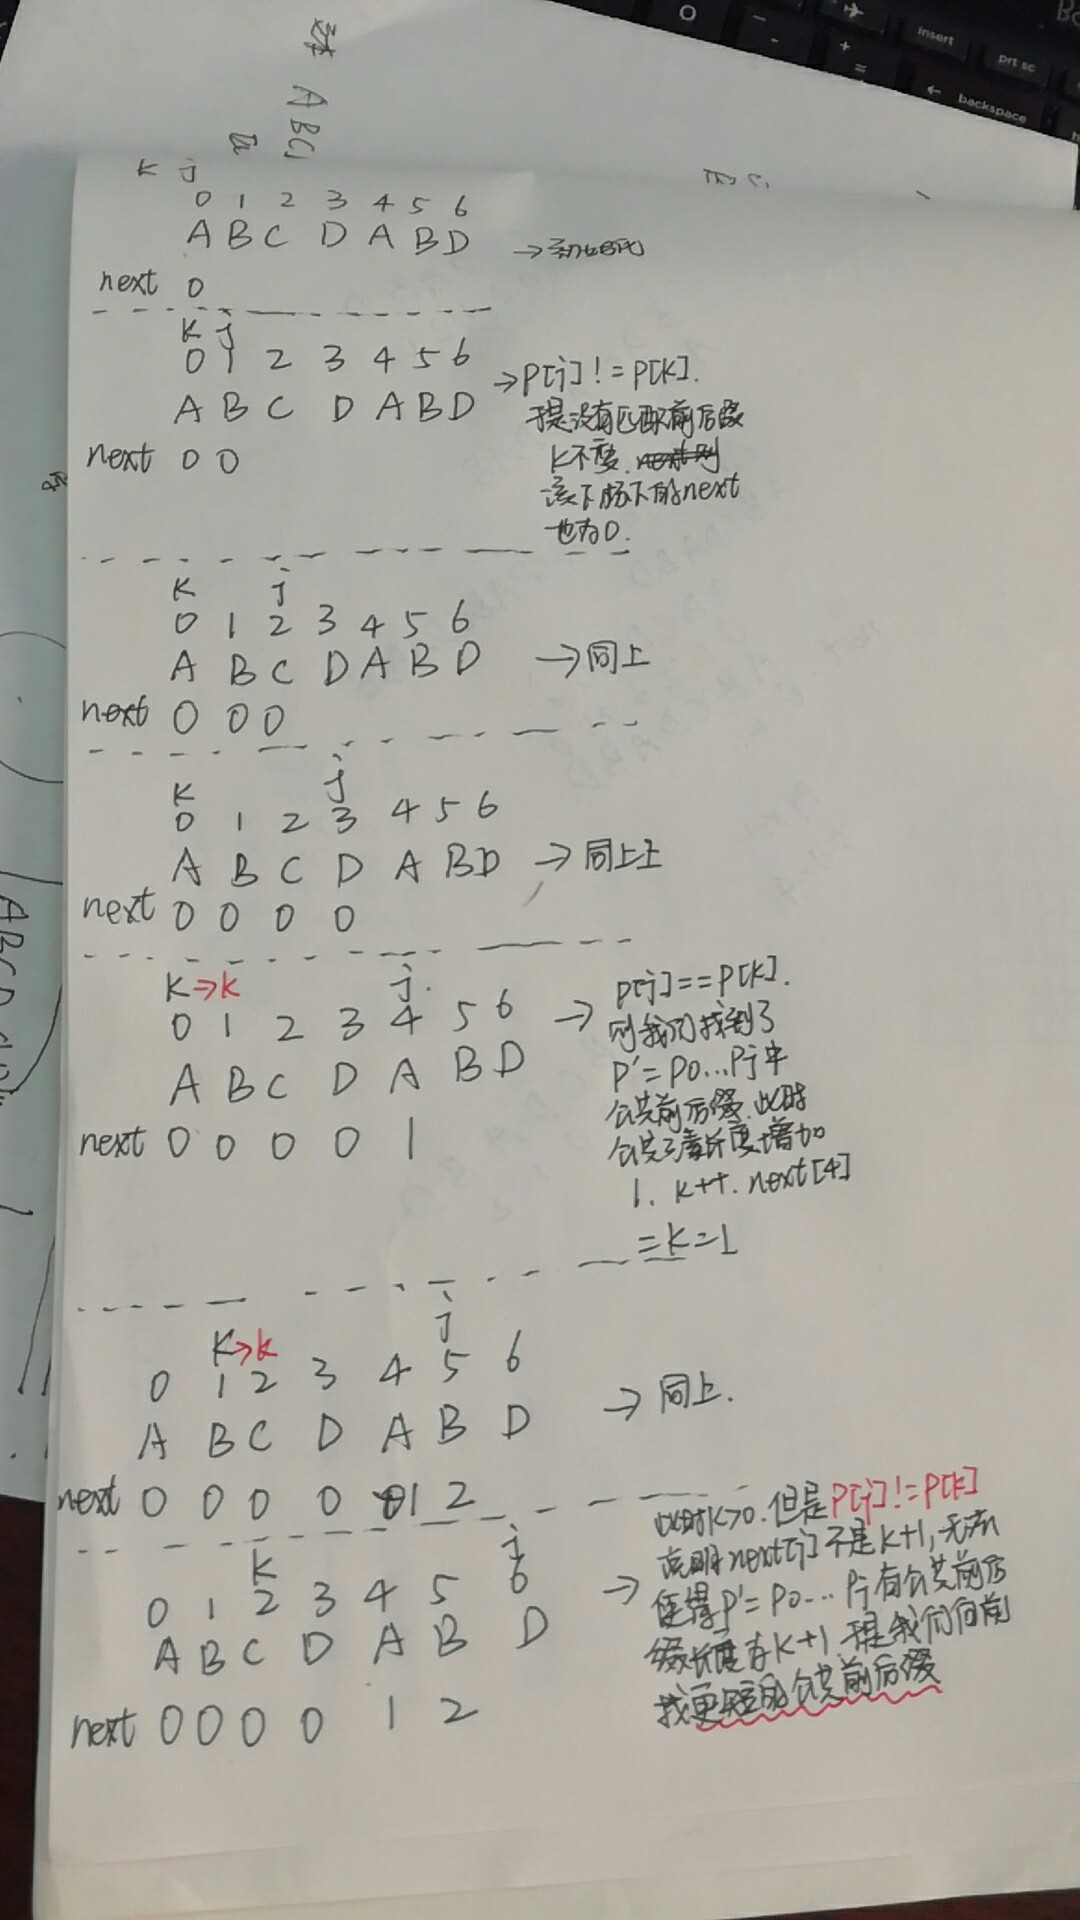 ABC
insert
prt sc
backspace
K j
0 1 2 3 4 5 6
A B C D A B D →初始时
next 0
K j
0 1 2 3 4 5 6
A B C D A B D
next 0 0
→P[j]!=P[K].
于是没有匹配前后缀
K不变.
该下标下的next
也为0.
K j
0 1 2 3 4 5 6
A B C D A B D →同上
next 0 0 0
K j
0 1 2 3 4 5 6
A B C D A B D →同上上
next 0 0 0 0
K→k j
0 1 2 3 4 5 6
A B C D A B D
next 0 0 0 0 1
→P[j]==P[K].
则我们找到了
P'=P0...Pj中
公共前后缀.此时
公共元素长度增加
1. K++. next[4]
=K=1
K→k j
0 1 2 3 4 5 6
A B C D A B D →同上.
next 0 0 0 0 1 2
K j
0 1 2 3 4 5 6
A B C D A B D
next 0 0 0 0 1 2
此时K>0.但是P[j]!=P[K]
→说明next[j]不是K+1,无法
使得P'=P0...Pj有公共前后
缀长度为K+1.于是我们向前
找更短的公共前后缀
ABCD